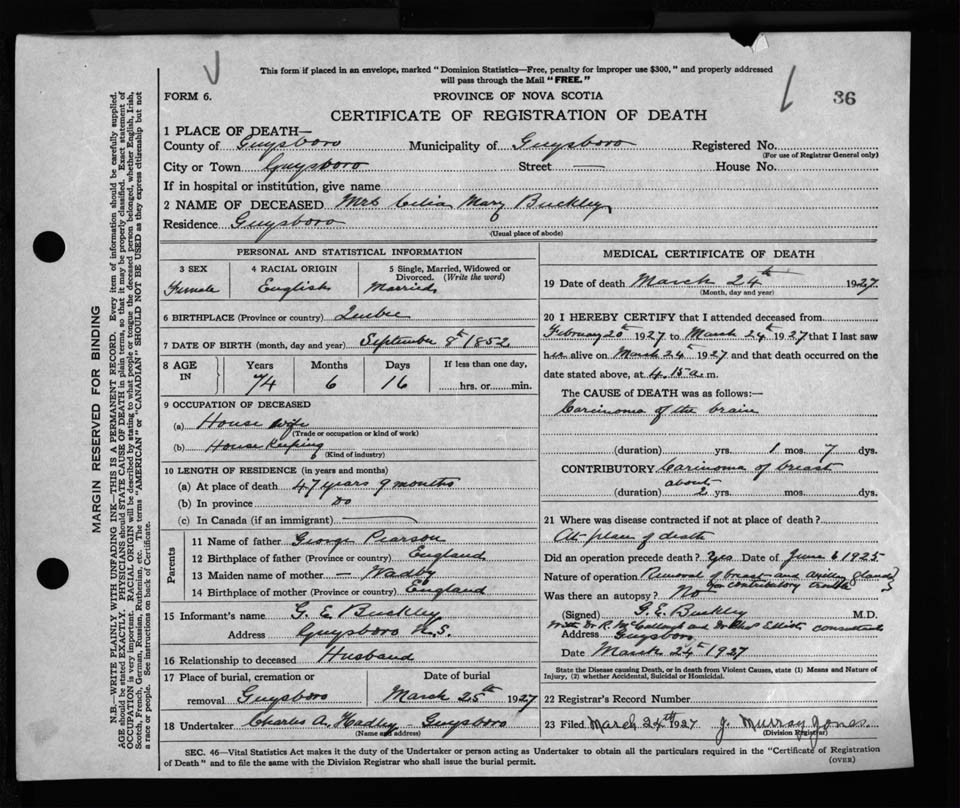 This form if placed in an envelope, marked "Dominion Statistics—Free, penalty for improper use $300," and properly addressed
will pass through the Mail "FREE."
FORM 6.
PROVINCE OF NOVA SCOTIA
36
CERTIFICATE OF REGISTRATION OF DEATH
1 PLACE OF DEATH—
County of Guysboro Municipality of Guysboro Registered No.
(For use of Registrar General only)
City or Town Guysboro Street — House No.
If in hospital or institution, give name
2 NAME OF DECEASED Mrs Celia Mary Buckley
Residence Guysboro
(Usual place of abode)
PERSONAL AND STATISTICAL INFORMATION
3 SEX
Female
4 RACIAL ORIGIN
English
5 Single, Married, Widowed or
Divorced. (Write the word)
Married
6 BIRTHPLACE (Province or country) Quebec
7 DATE OF BIRTH (month, day and year) September 8th 1852
8 AGE
IN
Years
74
Months
6
Days
16
If less than one day,
......hrs. or......min.
9 OCCUPATION OF DECEASED
(a) House wife
(Trade or occupation or kind of work)
(b) House Keeping
(Kind of industry)
10 LENGTH OF RESIDENCE (in years and months)
(a) At place of death 47 years 9 months
(b) In province Do
(c) In Canada (if an immigrant) —
Parents
11 Name of father George Pearson
12 Birthplace of father (Province or country) England
13 Maiden name of mother —
14 Birthplace of mother (Province or country) England
15 Informant's name G. E. Buckley
Address Guysboro N.S.
16 Relationship to deceased Husband
17 Place of burial, cremation or
removal Guysboro
Date of burial
March 25th 1927
18 Undertaker Charles A. Hadley - Guysboro
(Name and address)
MEDICAL CERTIFICATE OF DEATH
19 Date of death March 24th 1927
(Month, day and year)
20 I HEREBY CERTIFY that I attended deceased from
February 20th 1927 to March 24th 1927 that I last saw
her alive on March 24th 1927 and that death occurred on the
date stated above, at 4.15 a. m.
The CAUSE of DEATH was as follows:—
Carcinoma of the brain
(duration) yrs. 1 mos. 7 dys.
CONTRIBUTORY Carcinoma of breast
(duration) about 2 yrs. mos. dys.
21 Where was disease contracted if not at place of death?
At place of death
Did an operation precede death? Yes Date of June 6 1925
Nature of operation Removal of breast and axillary glands
for contributory trouble
Was there an autopsy? No
(Signed) G. E. Buckley M.D.
with Dr R. McCullough and Dr Elliott consultants
Address Guysboro
Date March 24th 1927
State the Disease causing Death, or in death from Violent Causes, state (1) Means and Nature of
Injury, (2) whether Accidental, Suicidal or Homicidal.
22 Registrar's Record Number
23 Filed March 24th 1927 J. Murray Jones
(Division Registrar)
SEC. 46—Vital Statistics Act makes it the duty of the Undertaker or person acting as Undertaker to obtain all the particulars required in the "Certificate of Registration
of Death" and to file the same with the Division Registrar who shall issue the burial permit.
(OVER)
MARGIN RESERVED FOR BINDING
N.B.—WRITE PLAINLY WITH UNFADING INK—THIS IS A PERMANENT RECORD. Every item of information should be carefully supplied.
AGE should be stated EXACTLY. PHYSICIANS should STATE CAUSE OF DEATH in plain terms, so that it may be properly classified. Exact statement of
OCCUPATION is very important. RACIAL ORIGIN will be described by stating to what people or tongue the deceased person belonged, whether English, Irish,
Scotch, French, German, Russian, Ruthenian, etc. The terms "AMERICAN" or "CANADIAN" SHOULD NOT BE USED as they express citizenship but not
a race or people. See instructions on back of Certificate.